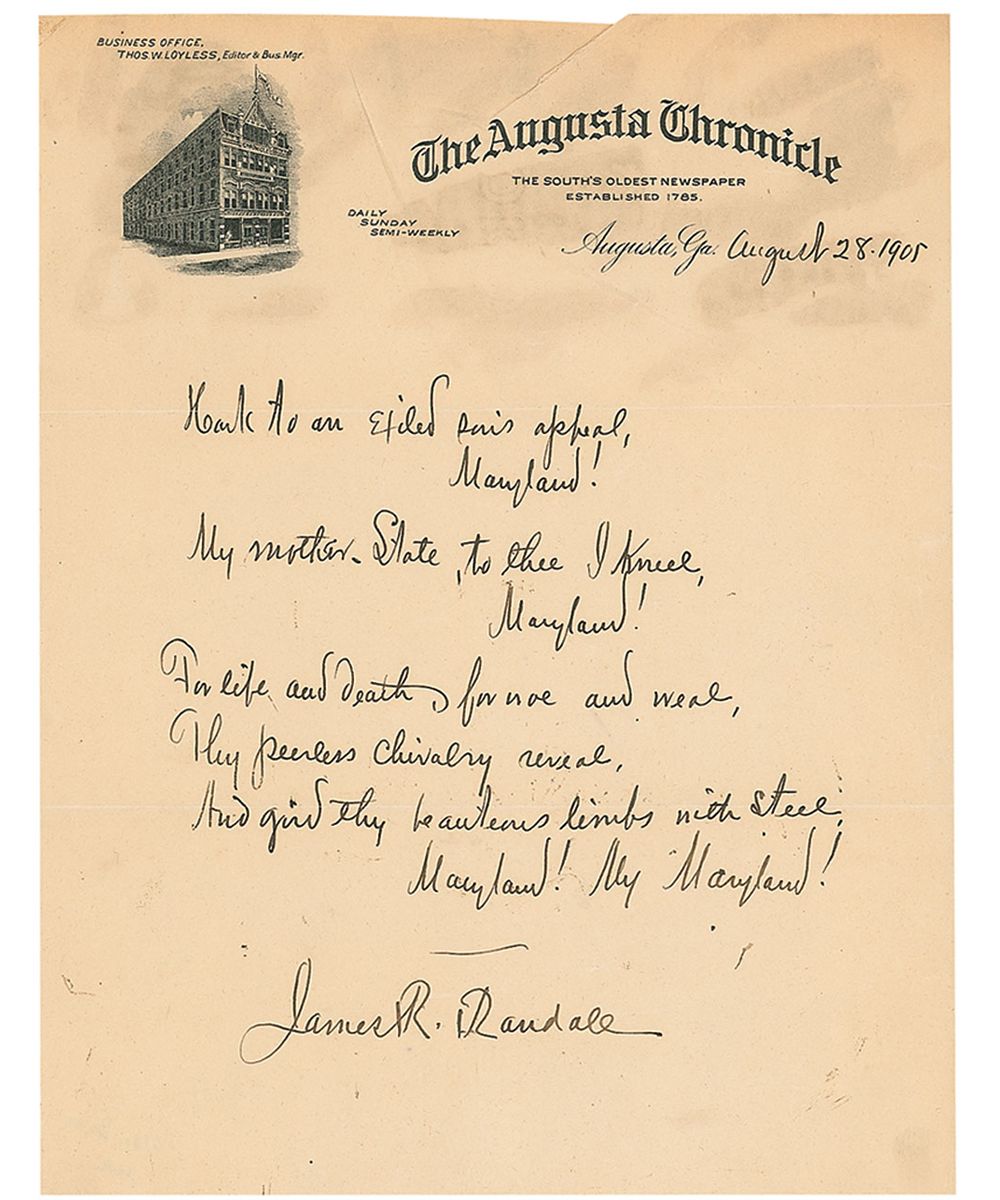 BUSINESS OFFICE.
THOS. W. LOYLESS, Editor & Bus. Mgr.
The Augusta Chronicle
THE SOUTH'S OLDEST NEWSPAPER
ESTABLISHED 1785.
DAILY
SUNDAY
SEMI-WEEKLY
Augusta, Ga. August 28. 1905
Hark to an exiled son's appeal,
Maryland!
My mother-State, to thee I kneel,
Maryland!
For life and death, for woe and weal,
Thy peerless chivalry reveal,
And gird thy beauteous limbs with steel,
Maryland! My Maryland!
James R. Randall